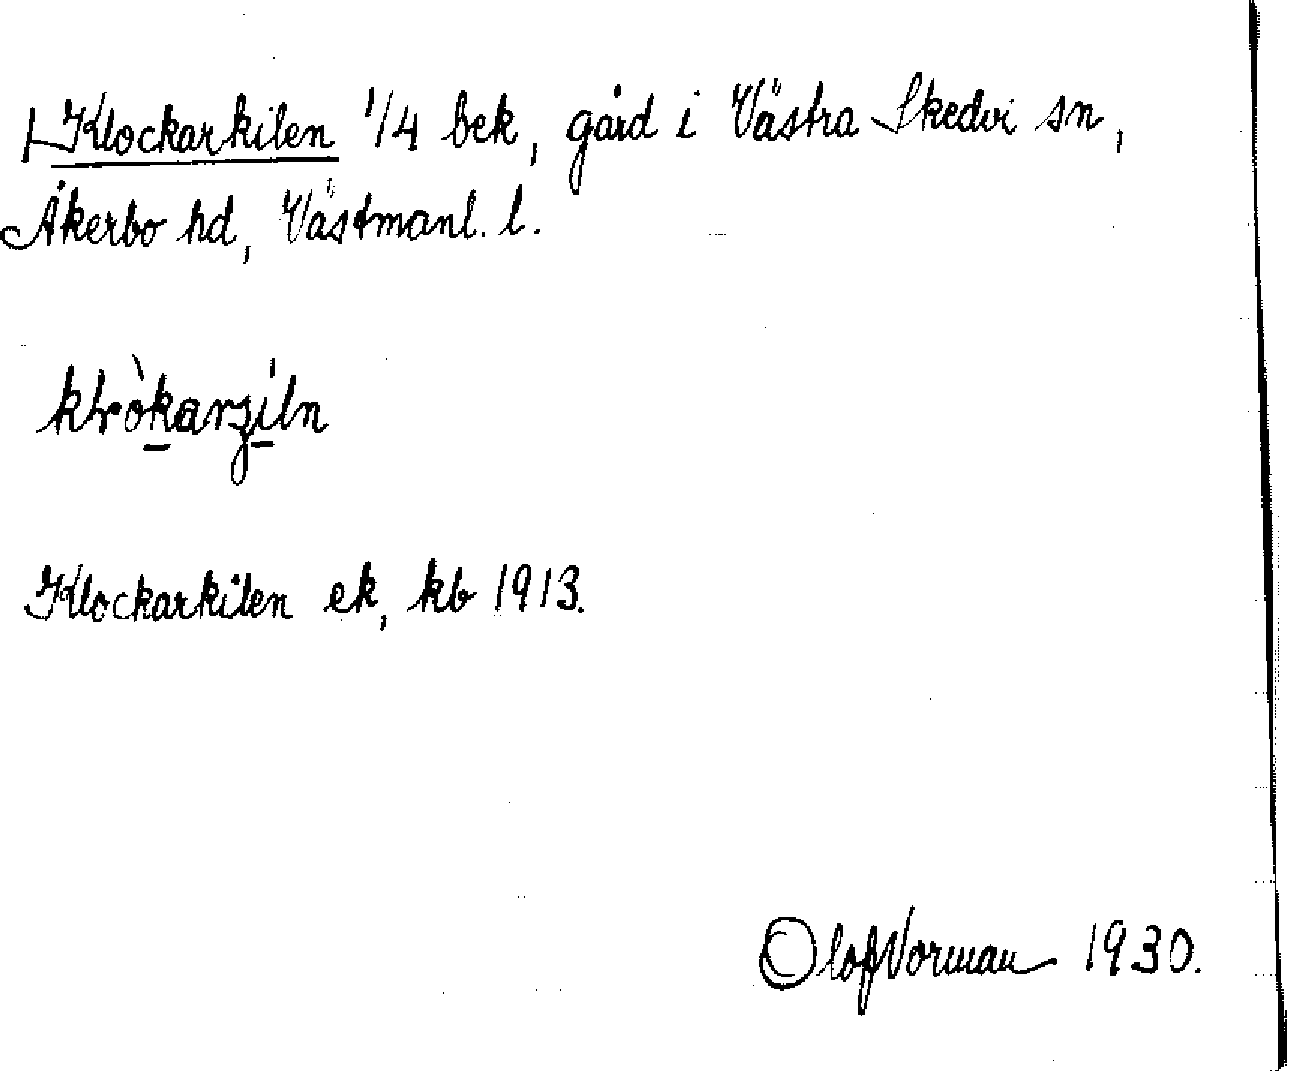 Klockarkilen 1/4 bek, gård i Västra Skedvi sn,
Åkerbo hd, Västmanl. l.
Klockarkilen ek, kb 1913.
Olof Vorman 1930.